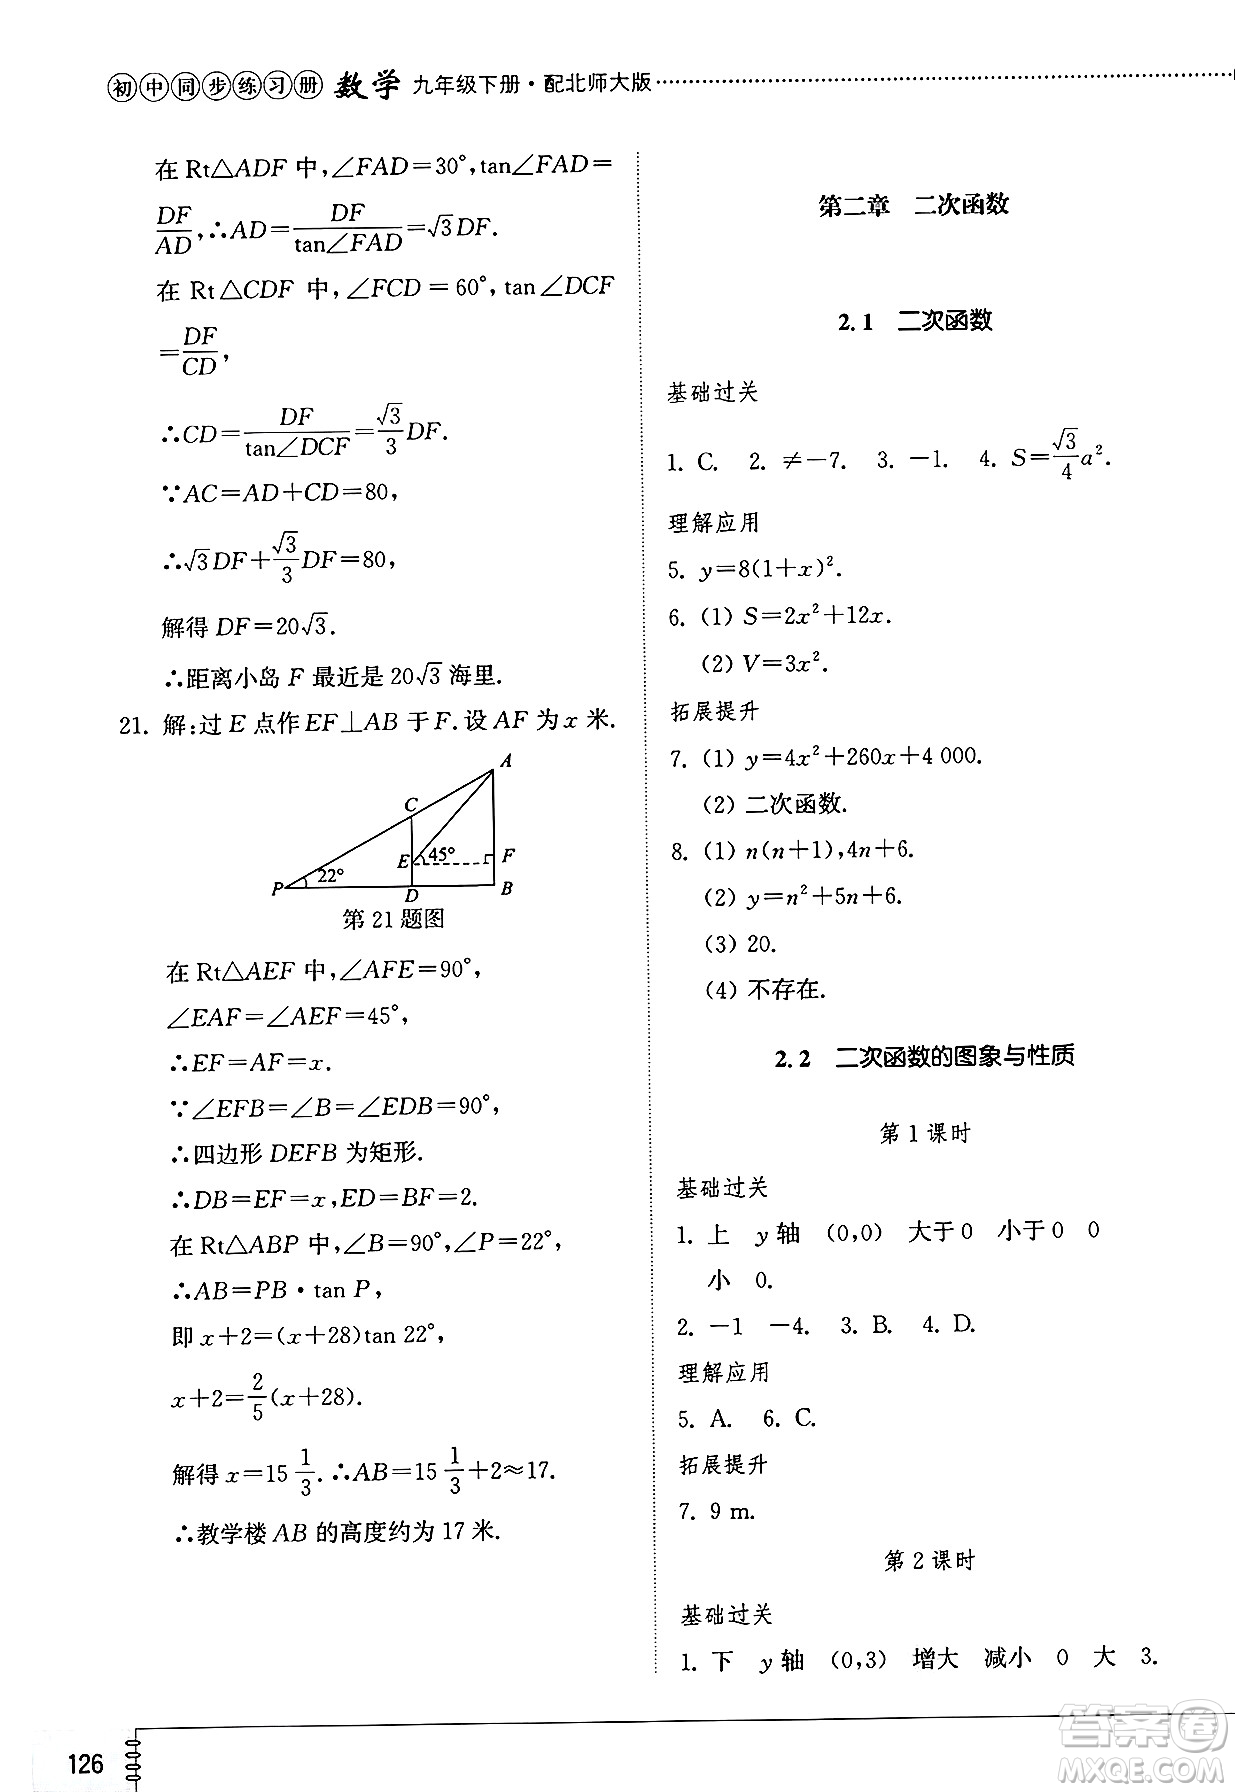 初中同步练习册 数学 九年级下册·配北师大版
在 Rt△ADF 中,∠FAD=30°,tan∠FAD=
DF/AD,∴AD=DF/tan∠FAD=√3DF.
在 Rt△CDF 中,∠FCD=60°,tan∠DCF
=DF/CD,
∴CD=DF/tan∠DCF=√3/3 DF.
∵AC=AD+CD=80,
∴√3DF+√3/3 DF=80,
解得 DF=20√3.
∴距离小岛 F 最近是 20√3 海里.
21. 解:过 E 点作 EF⊥AB 于 F.设 AF 为 x 米.
A
C
E 45° F
P 22° D B
第 21 题图
在 Rt△AEF 中,∠AFE=90°,
∠EAF=∠AEF=45°,
∴EF=AF=x.
∵∠EFB=∠B=∠EDB=90°,
∴四边形 DEFB 为矩形.
∴DB=EF=x,ED=BF=2.
在 Rt△ABP 中,∠B=90°,∠P=22°,
∴AB=PB·tan P,
即 x+2=(x+28)tan 22°,
x+2=2/5(x+28).
解得 x=15 1/3.∴AB=15 1/3+2≈17.
∴教学楼 AB 的高度约为 17 米.
第二章 二次函数
2.1 二次函数
基础过关
1. C. 2. ≠−7. 3. −1. 4. S=√3/4 a².
理解应用
5. y=8(1+x)².
6. (1) S=2x²+12x.
(2) V=3x².
拓展提升
7. (1) y=4x²+260x+4 000.
(2) 二次函数.
8. (1) n(n+1),4n+6.
(2) y=n²+5n+6.
(3) 20.
(4) 不存在.
2.2 二次函数的图象与性质
第 1 课时
基础过关
1. 上 y 轴 (0,0) 大于 0 小于 0 0
小 0.
2. −1 −4. 3. B. 4. D.
理解应用
5. A. 6. C.
拓展提升
7. 9 m.
第 2 课时
基础过关
1. 下 y 轴 (0,3) 增大 减小 0 大 3.
126
答案卷
MXQE.COM